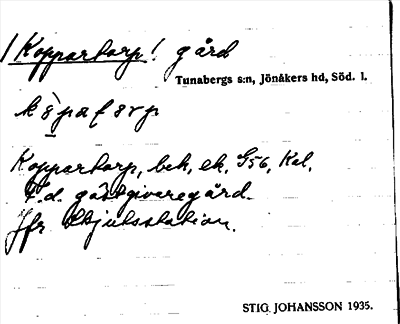 /Koppartorp/ gård
Tunabergs s:n, Jönåkers hd, Söd. l.
Koppartorp, bek, ek. G56, Kal.
F.d. gästgivaregård.
Jfr Skjutsstation.
STIG JOHANSSON 1935.